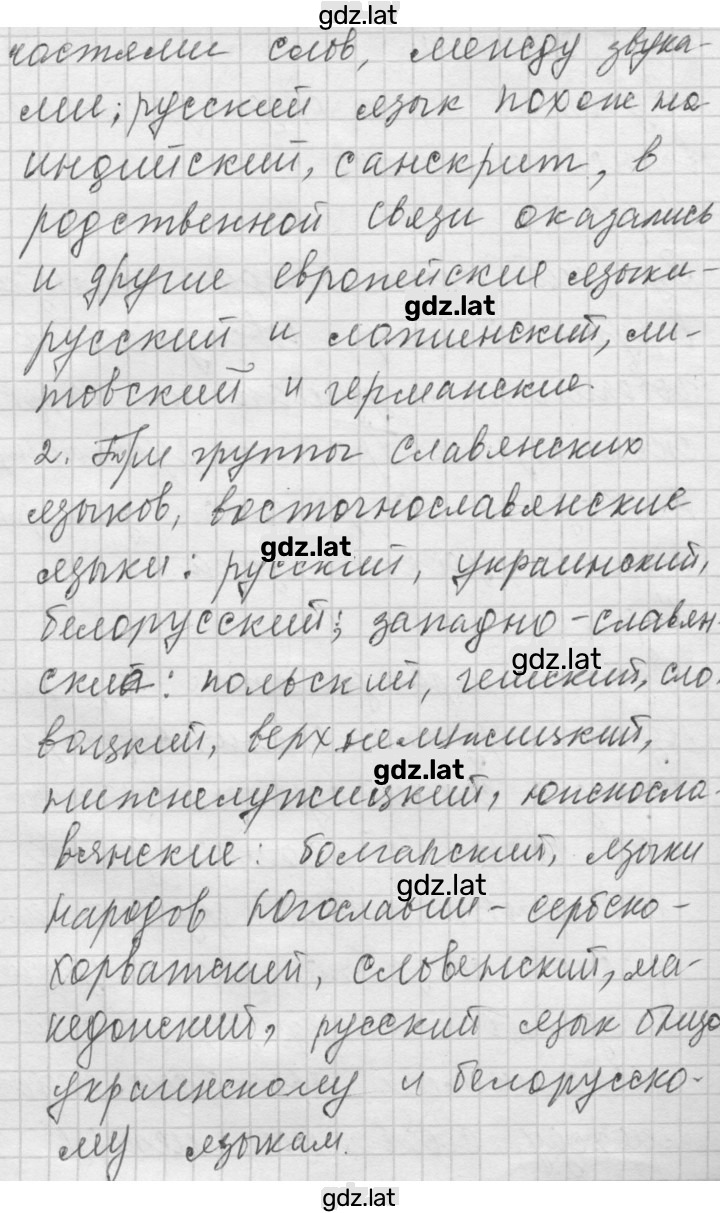 gdz.lat
частями слов, между звука-
ми; русский язык похож на
индийский, санскрит, в
родственной связи оказались
и другие европейские языки-
gdz.lat
русский и латинский, ли-
товский и германские.
2. Три группы славянских
языков, восточнославянские
gdz.lat
языки: русский, украинский,
белорусский; западно-славян-
gdz.lat
ские: польский, чешский, сло-
вацкий, верхнелужицкий,
gdz.lat
нижнелужицкий, южносла-
вянские: болгарский, языки
gdz.lat
народов Югославии - сербско-
хорватский, словенский, ма-
кедонский, русский язык
украинскому и белорусско-
му языкам.
gdz.lat